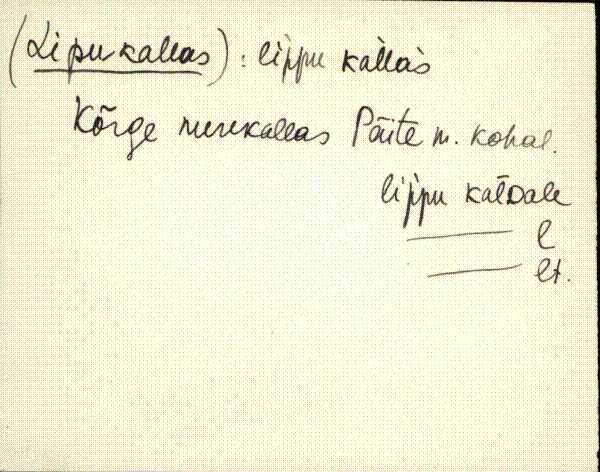 (Lipukallas) : lippu kallas
Kõrge merekallas Päite m. kohal.
lippu kalDale
——— l
——— lt.